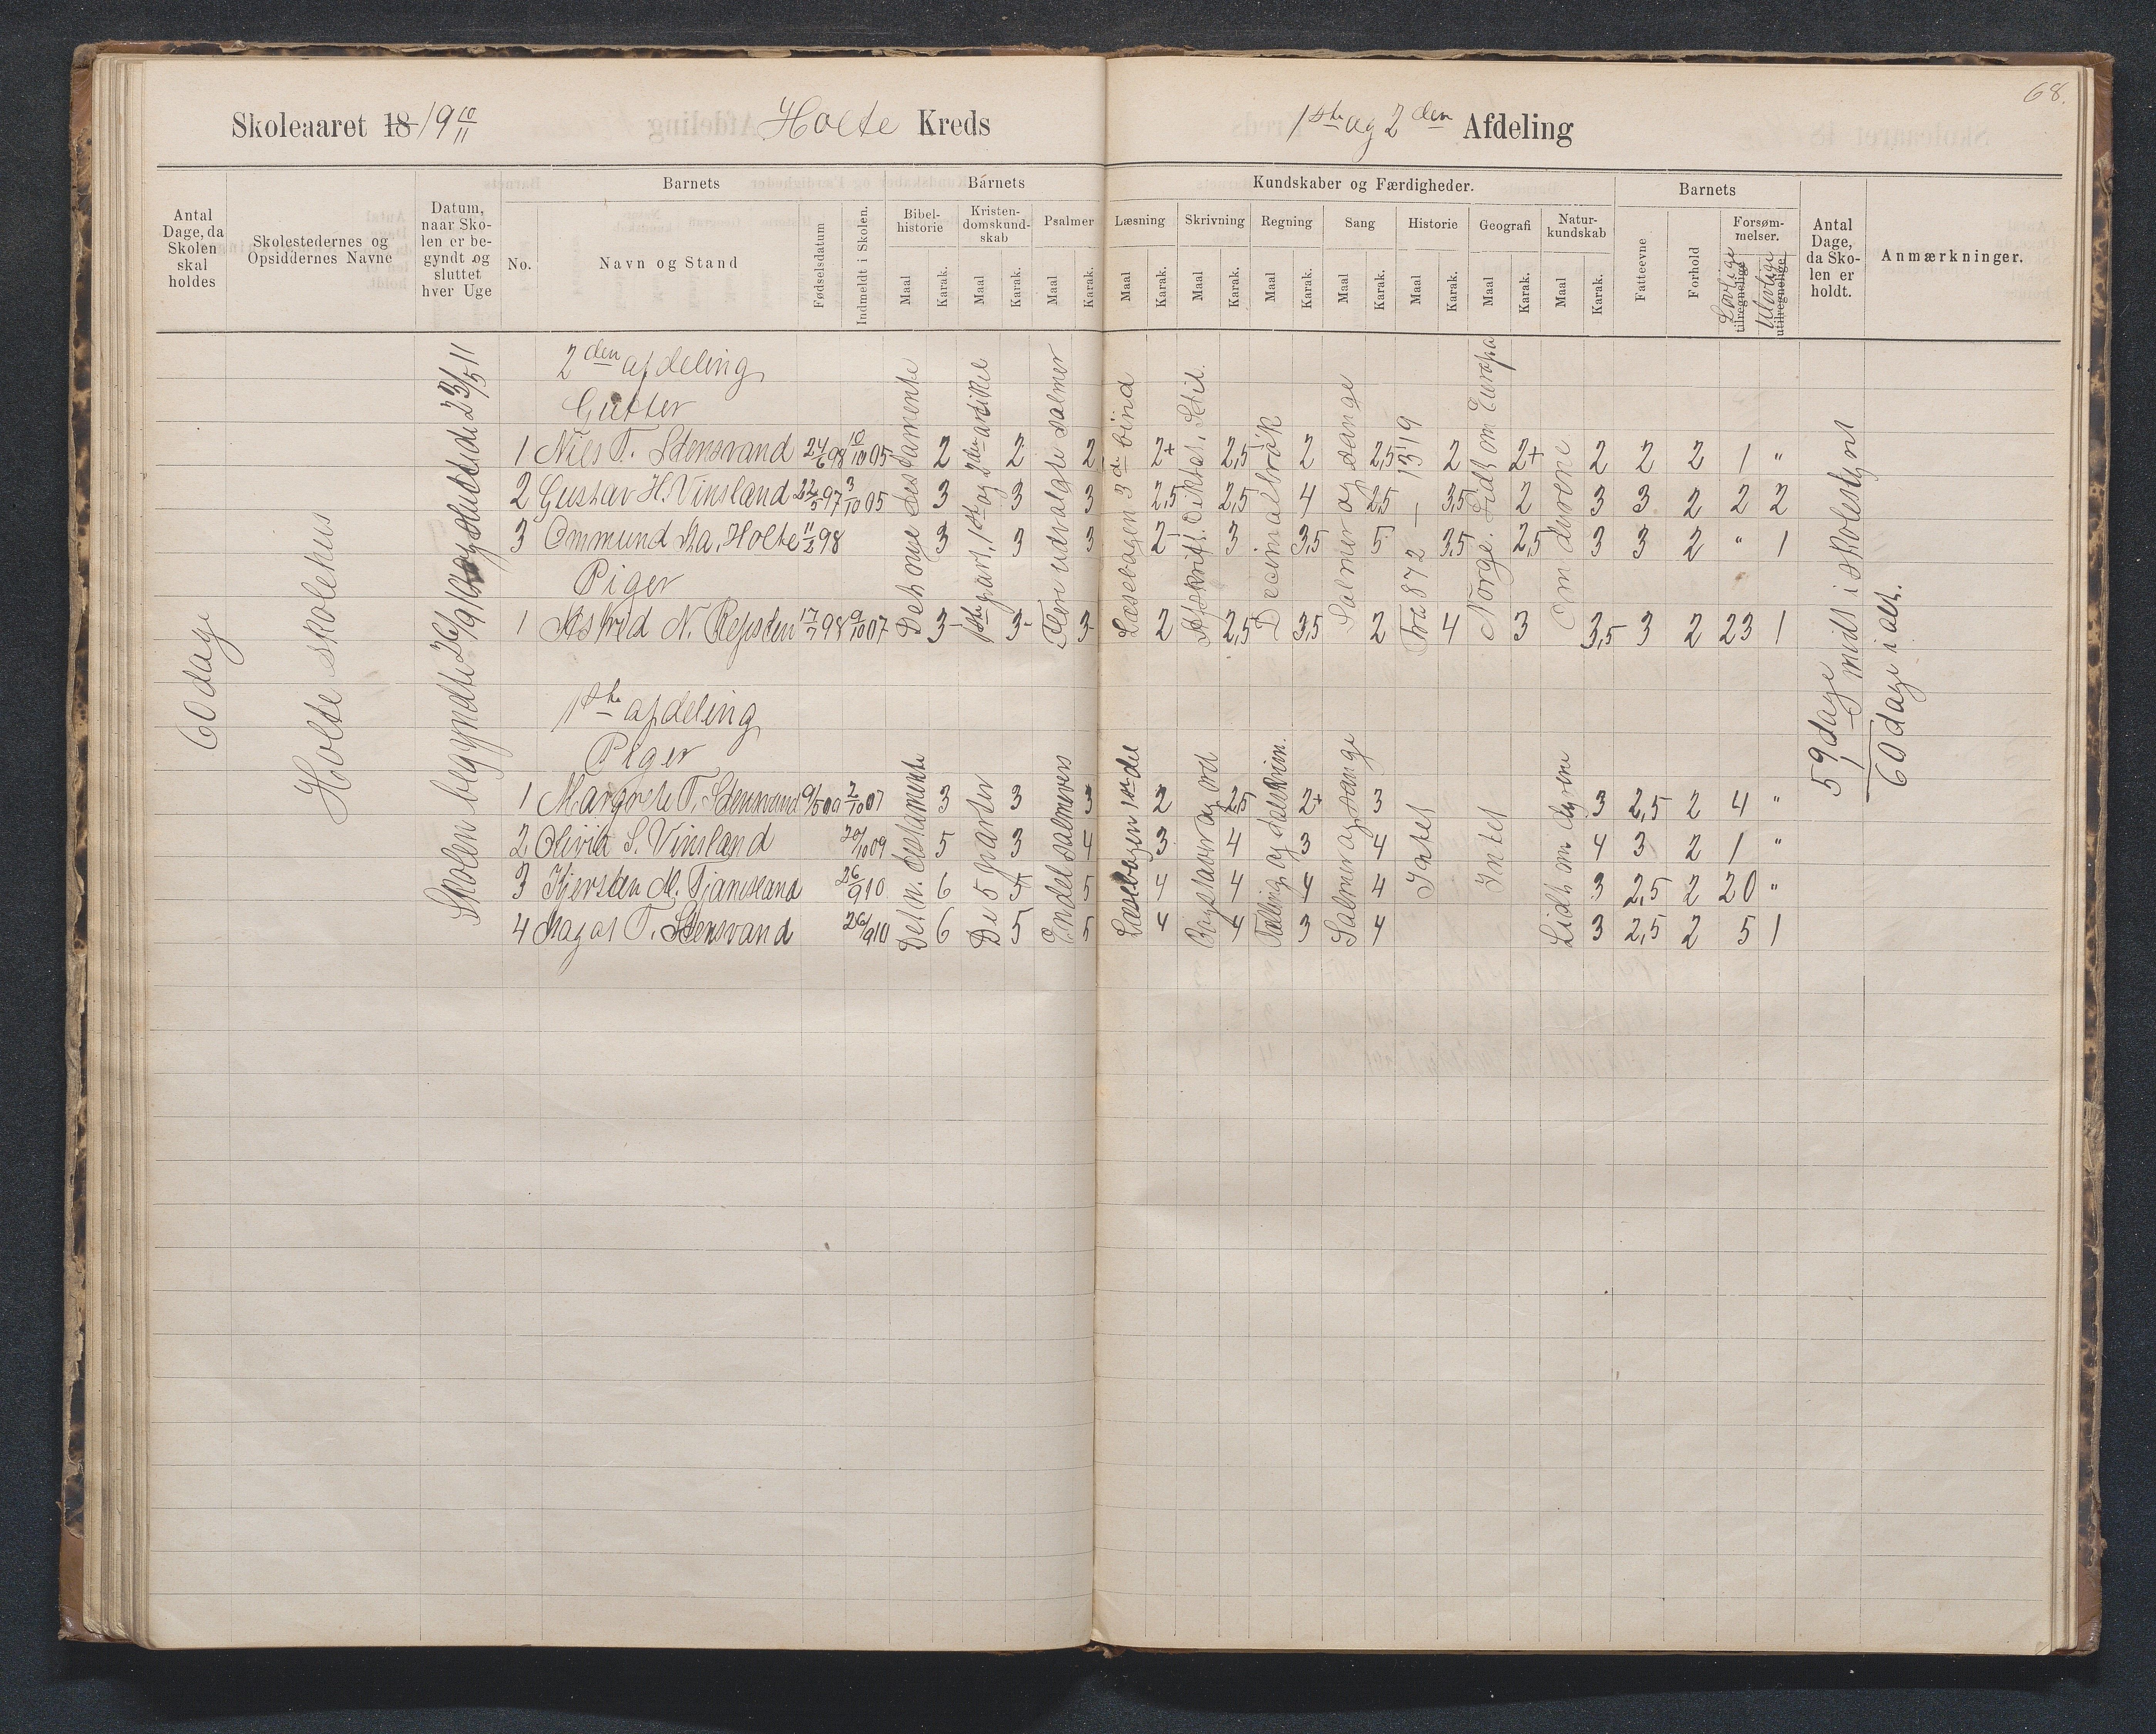 68.
Skoleaaret 18 19 10/11
Holte Kreds
1ste og 2den Afdeling
Antal Dage, da Skolen skal holdes
Skolestedernes og Opsiddernes Navne
Datum, naar Skolen er begyndt og sluttet hver Uge
Barnets
No.
Navn og Stand
Fødselsdatum
Indmeldt i Skolen.
Barnets
Kundskaber og Færdigheder.
Bibelhistorie Maal Karak.
Kristendomskundskab Maal Karak.
Psalmer Maal Karak.
Læsning Maal Karak.
Skrivning Maal Karak.
Regning Maal Karak.
Sang Maal Karak.
Historie Maal Karak.
Geografi Maal Karak.
Naturkundskab Maal Karak.
Barnets
Fatteevne
Forhold
Forsømmelser.
Lovlige tilregnelige
Ulovlige utilregnelige
Antal Dage, da Skolen er holdt.
Anmærkninger.
60 dage
Holte skolehus
Skolen begyndte 26/9 10 og sluttede 23/5 11
2den afdeling
Gutter
Det nye testamente
1ste part, 1ste og 2den artikel
Flere udvalgte salmer
Læsebogen 3de bind
Afskrift. Diktat. Stil.
Decimalbrøk
Salmer og sange
Fra 872 – 1319
Norge. Lidt om Europa
Om dyrene
1 Niels T. Stensvand 24/6 98 10/10 05 2 2 2 2+ 2,5 2 2,5 2 2+ 2 2 2 1 "
2 Gustav H. Vinsland 22/5 97 3/10 05 3 3 3 2,5 2,5 4 2,5 3,5 2 3 3 2 2 2
3 Ommund Ka. Holte 11/2 98 3 3 3 2 3 3,5 5 3,5 2,5 3 3 2 " 1
Piger
1 Astrid N. Repsten 17/7 98 9/10 07 3 3 3 2 2,5 3,5 2 4 3 3,5 3 2 23 1
59 dage
1 midt i skolestyret
60 dage i alt.
1ste afdeling
Piger
Det n. testamente
De 5 parter
En del salmevers
Læsebogen 1ste del
Bogstaver og ord
Tælling og talskrivn.
Salmer og sange
Intet
Intet
Lidt om dyrene
1 Margrete T. Stensvand 9/5 00 2/10 07 3 3 3 2 2,5 2+ 3 3 2,5 2 4 "
2 Olivia S. Vinsland 20/10 09 5 3 4 3 4 3 4 4 3 2 1 "
3 Kjersten M. 26/9 10 6 5 5 4 4 4 4 3 2,5 2 20 "
4 T. Stensvand 26/9 10 6 5 5 4 4 3 4 3 2,5 2 5 1